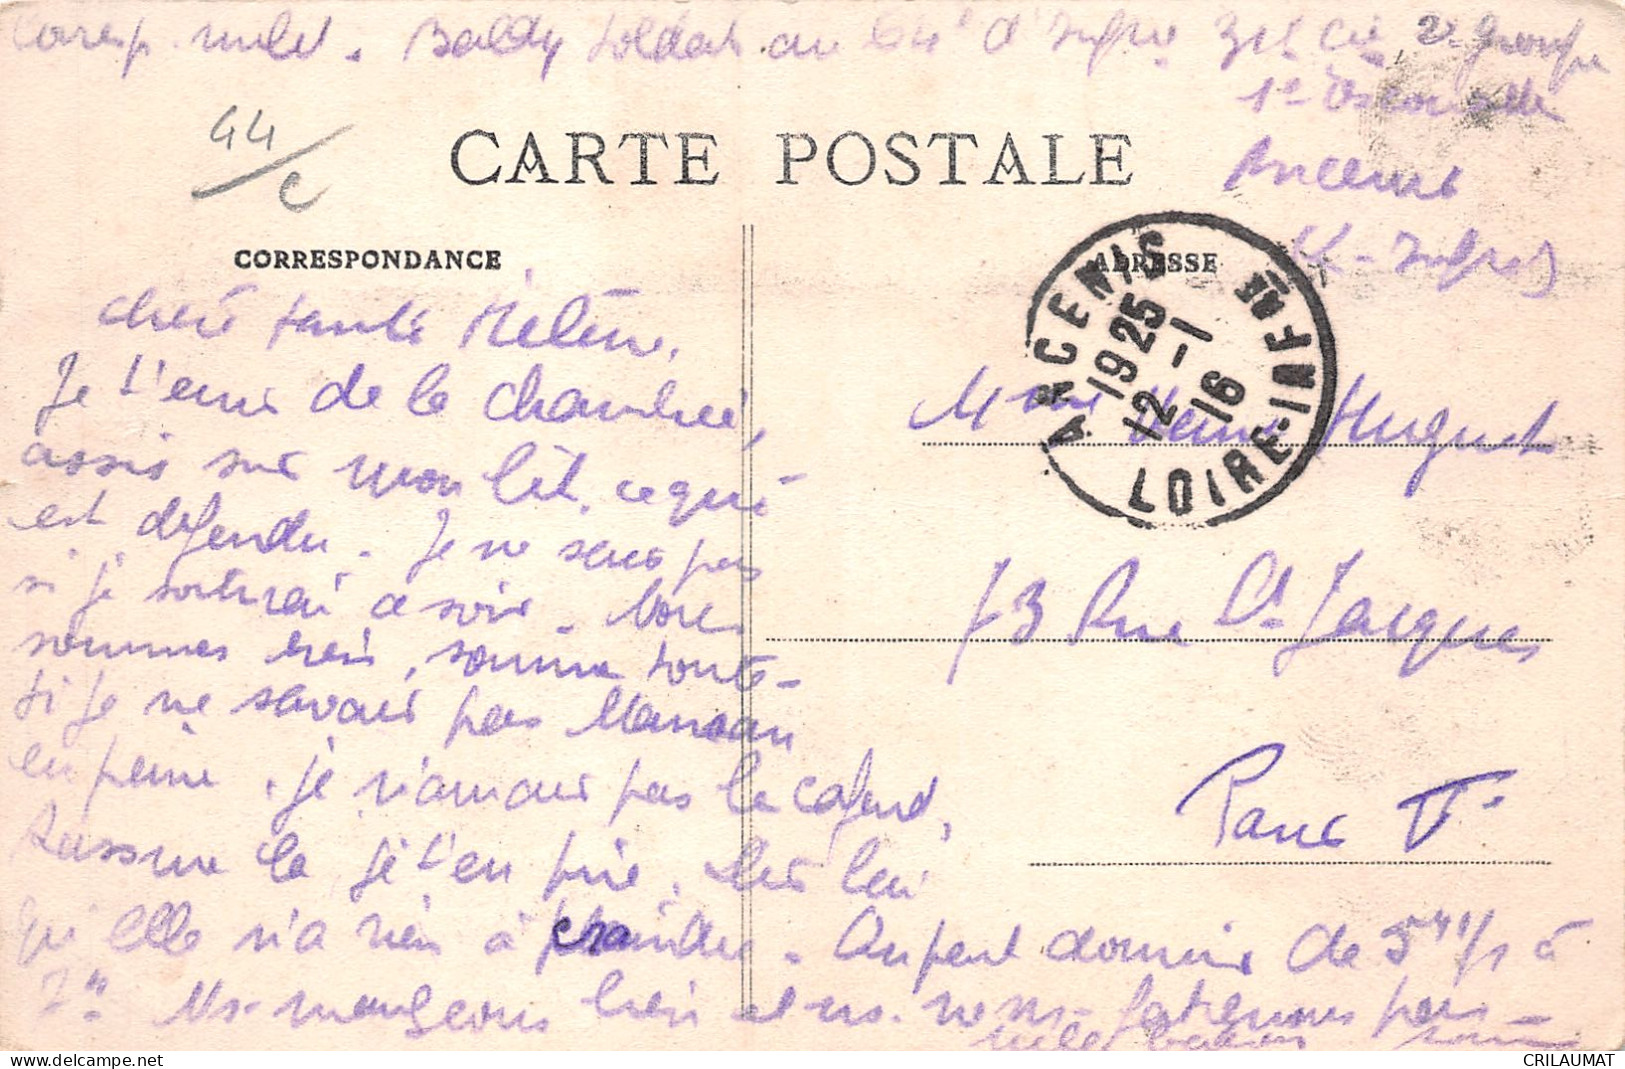 Corresp. milit. Baldy soldat au 64e d'Infrie 31e Cie 2e groupe
1e Escouade
Ancenis
(L-Infre)
44/c
CARTE POSTALE
CORRESPONDANCE
ADRESSE
ANCENIS
1925
12 -1
16
LOIRE-INFRE
chère tante Hélène.
Je t'écris de la chambrée,
assis sur mon lit, ce qui
est défendu. Je ne sais pas
si je sortirai ce soir. Nous
sommes bien, somme toute.
Si je ne savais pas Maman
en peine, je n'aurais pas le cafard,
Rassure la je t'en prie. Dis lui
qu'elle n'a rien à craindre. On peut dormir de 5h 1/2 à
7h. Ns. mangeons bien et ns. ne ns. fatiguons pas
Mme Huguet
73 Rue St Jacques
Paris Ve
CRILAUMAT